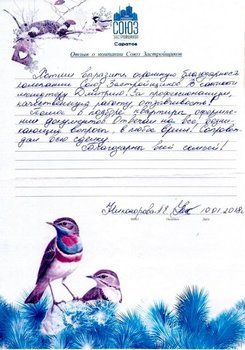 СОЮЗ
ЗАСТРОЙЩИКОВ
Саратов
Отзыв о компании Союз Застройщиков
Хотим выразить огромную благодарность
компании Союз Застройщиков. В частности
менеджеру Дмитрию! За профессионализм,
качественную работу, отзывчивость!
Помог в подборе квартиры, оформле-
нии документов. Отвечал на все возни-
кающие вопросы в любое время! Сопровож-
дал всю сделку.
Благодарны всей семьёй!
10.01.2018г.